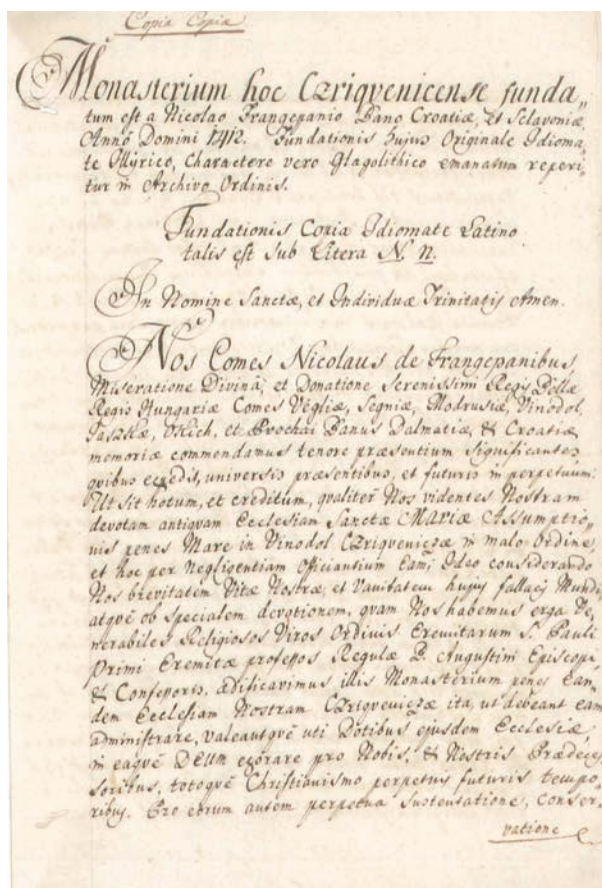 Copia Copiæ
Monasterium hoc Czriquenicense funda„
tum est a Nicolao Frangepanio Bano Croatiæ, et Sclavoniæ
Anno Domini 1412. Fundationis hujus Originale Idioma„
te Illÿrico, Charactere vero Glagolithico emanatum reperi„
tur in Archivo Ordinis.
Fundationis Copia Idiomate Latino
talis est sub Litera N. n.
In Nomine Sanctæ, et Individuæ Trinitatis Amen.
Nos Comes Nicolaus de Frangepanibus,
Miseratione Divinâ, et Donatione Serenissimi Regis Bellæ
Regis Hungariæ Comes Vegliæ, Segniæ, Modrusiæ, Vinodol,
et Banus Dalmatiæ, & Croatiæ
memoriæ commendamus tenore præsentium significantes
quibus expedit, universis præsentibus, et futuris in perpetuum:
Ut sit notum, et creditum, qualiter Nos videntes Nostram
devotam antiquam Ecclesiam Sanctæ Mariæ Assumptio„
nis penes Mare in Vinodol Czriqueniczæ in malo Ordine,
et hoc per Negligentiam Officiantium Eam; Ideo considerando
Nos brevitatem Vitæ Nostræ, et Vanitatem hujus fallacis Mundi,
atquè ob specialem devotionem, quam Nos habemus erga Ve„
nerabiles Religiosos Viros Ordinis Eremitarum S. Pauli
Primi Eremitæ professos Regulæ D. Augustini Episcopi,
& Confessoris, ædificavimus illis Monasterium penes Ean„
dem Ecclesiam Nostram Czriqueniczæ ita, ut debeant eam
administrare, valeantquè uti Dotibus ejusdem Ecclesiæ,
in eaquè DEUM exorare pro Nobis, & Nostris Prædeces„
soribus, totoquè Christianismo perpetuis futuris tempo„
ribus. Pro eorum autem perpetua sustentatione, conser„
vatione